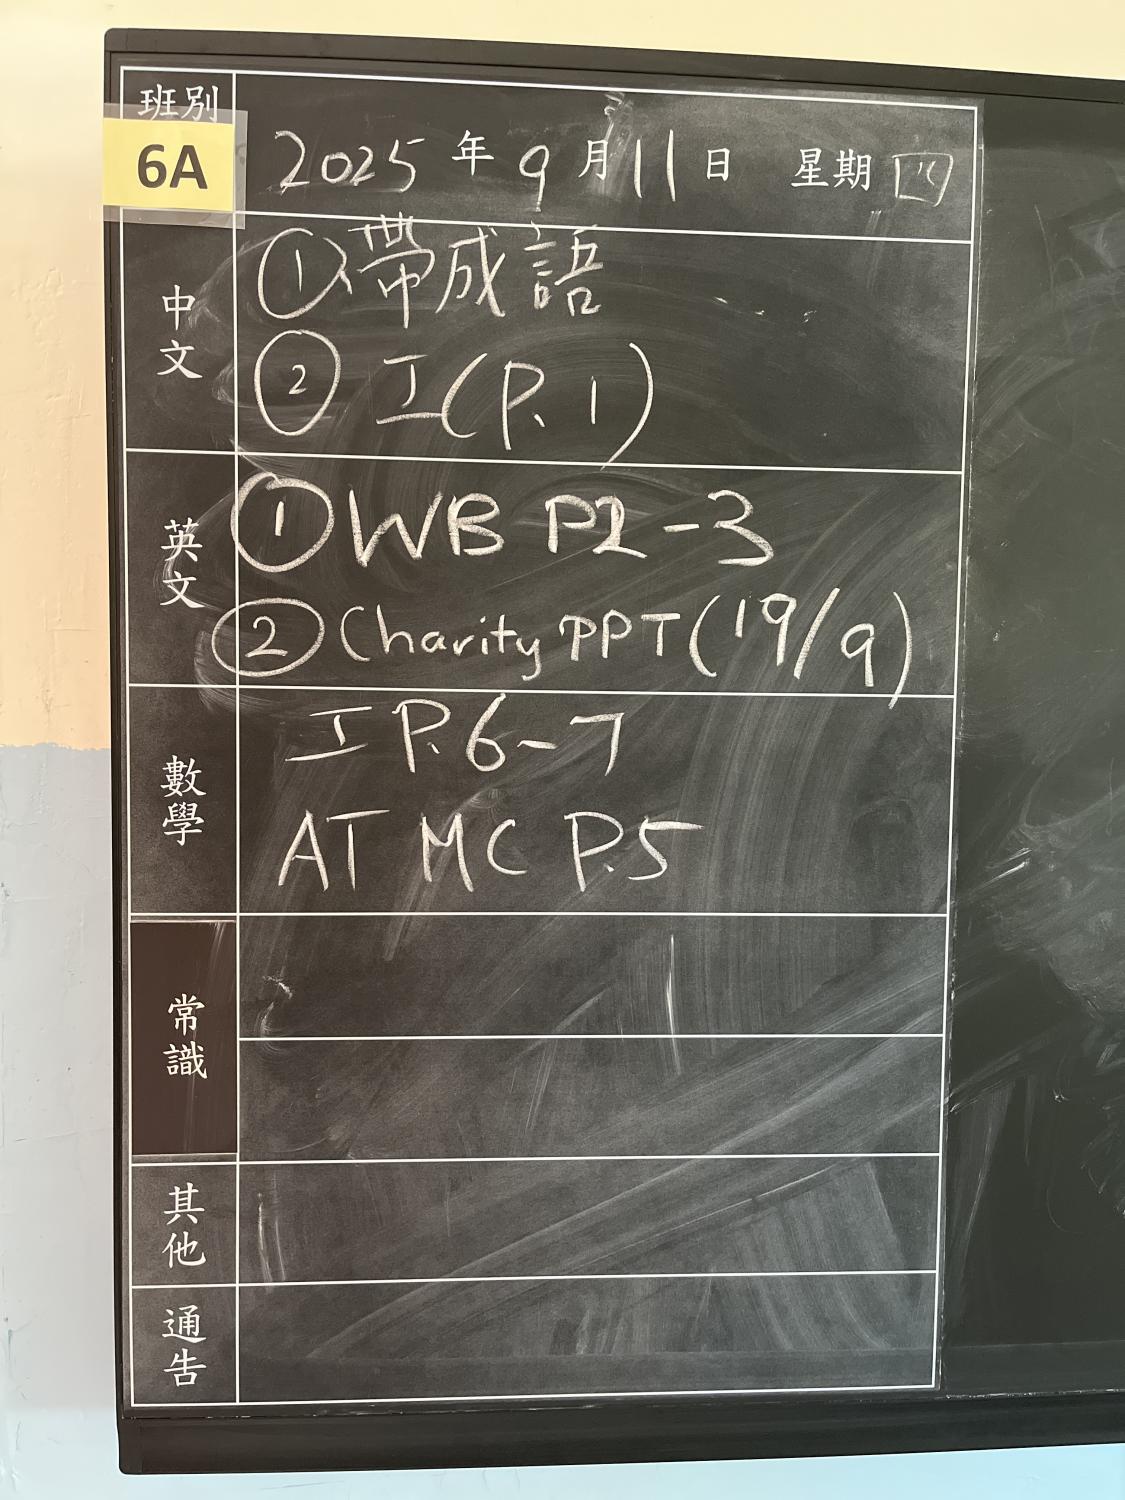 班別
6A
2025年9月11日 星期四
中文
①帶成語
② 工(P.1)
英文
① WB P2-3
② Charity PPT(19/9)
數學
工 P.6-7
AT MC P.5
常識
其他
通告